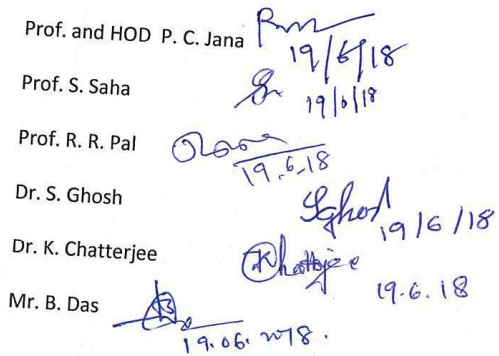 Prof. and HOD P. C. Jana
19/6/18
Prof. S. Saha
19/6/18
Prof. R. R. Pal
19.6.18
Dr. S. Ghosh
SGhosh
19/6/18
Dr. K. Chatterjee
KChatterjee
19.6.18
Mr. B. Das
19.06.2018.